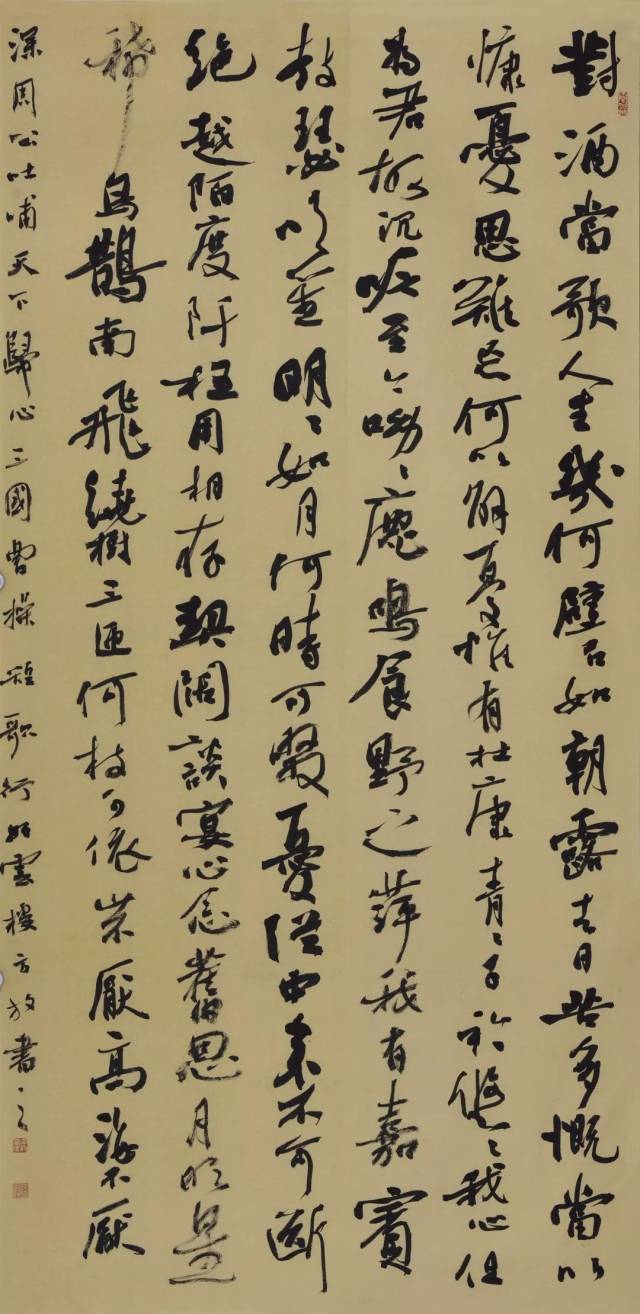 對酒當歌人生幾何譬如朝露去日苦多慨當以
慷憂思難忘何以解憂惟有杜康青〻子衿悠〻我心但
為君故沉吟至今呦〻鹿鳴食野之萍我有嘉賓
鼓瑟吹笙明〻如月何時可掇憂從中來不可斷
絕越陌度阡枉用相存契闊談宴心念舊恩月明星
稀烏鵲南飛繞樹三匝何枝可依山不厭高海不厭
深周公吐哺天下歸心三國曹操短歌行雲樓方放書